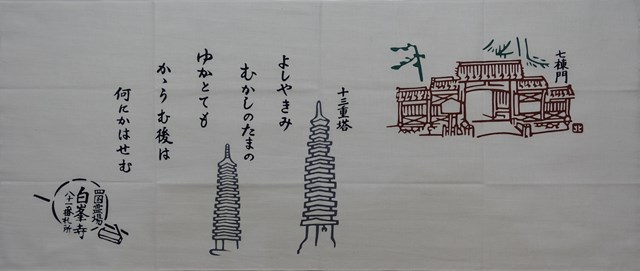 七棟門
十三重塔
よしやきみ
むかしのたまの
ゆかとても
かゝらむ後は
何にかはせむ
四国霊場
白峯寺
八十一番札所